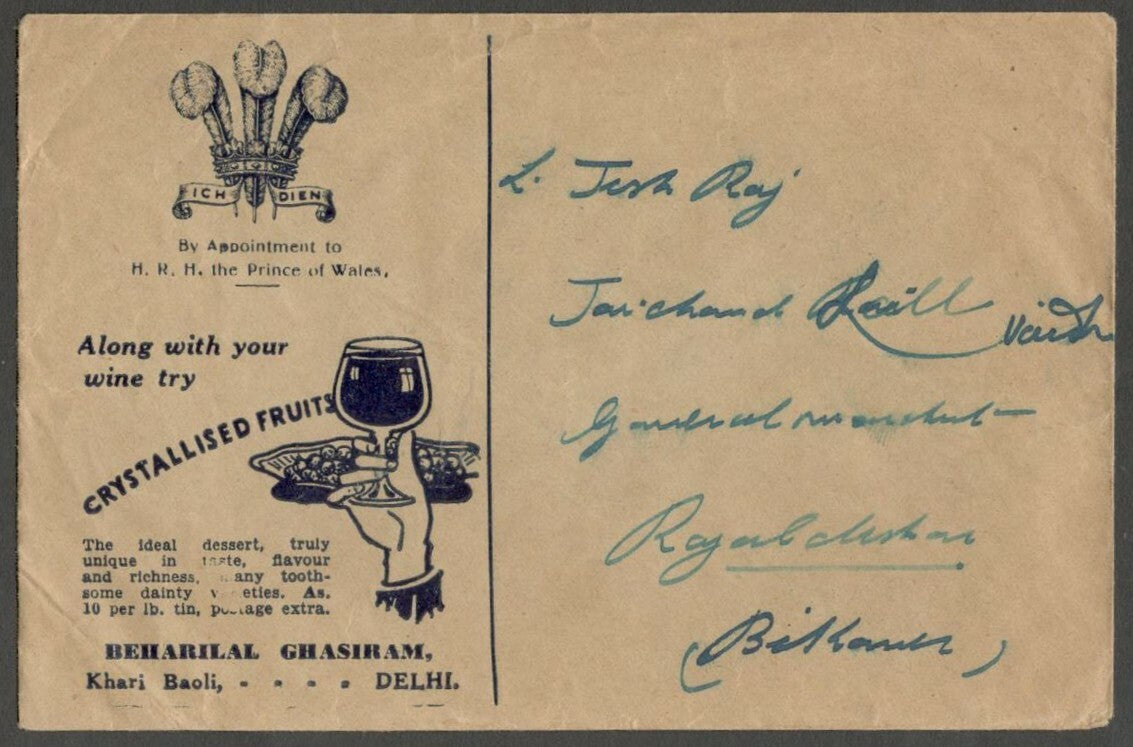 ICH DIEN
By Appointment to
H. R. H. the Prince of Wales.
Along with your
wine try
CRYSTALLISED FRUITS
The ideal dessert, truly
unique in taste, flavour
and richness, any tooth-
some dainty v eties. As.
10 per lb. tin, postage extra.
BEHARILAL GHASIRAM,
Khari Baoli, - - - - DELHI.
L. Raj
Jaichand
General
(Bikaner)